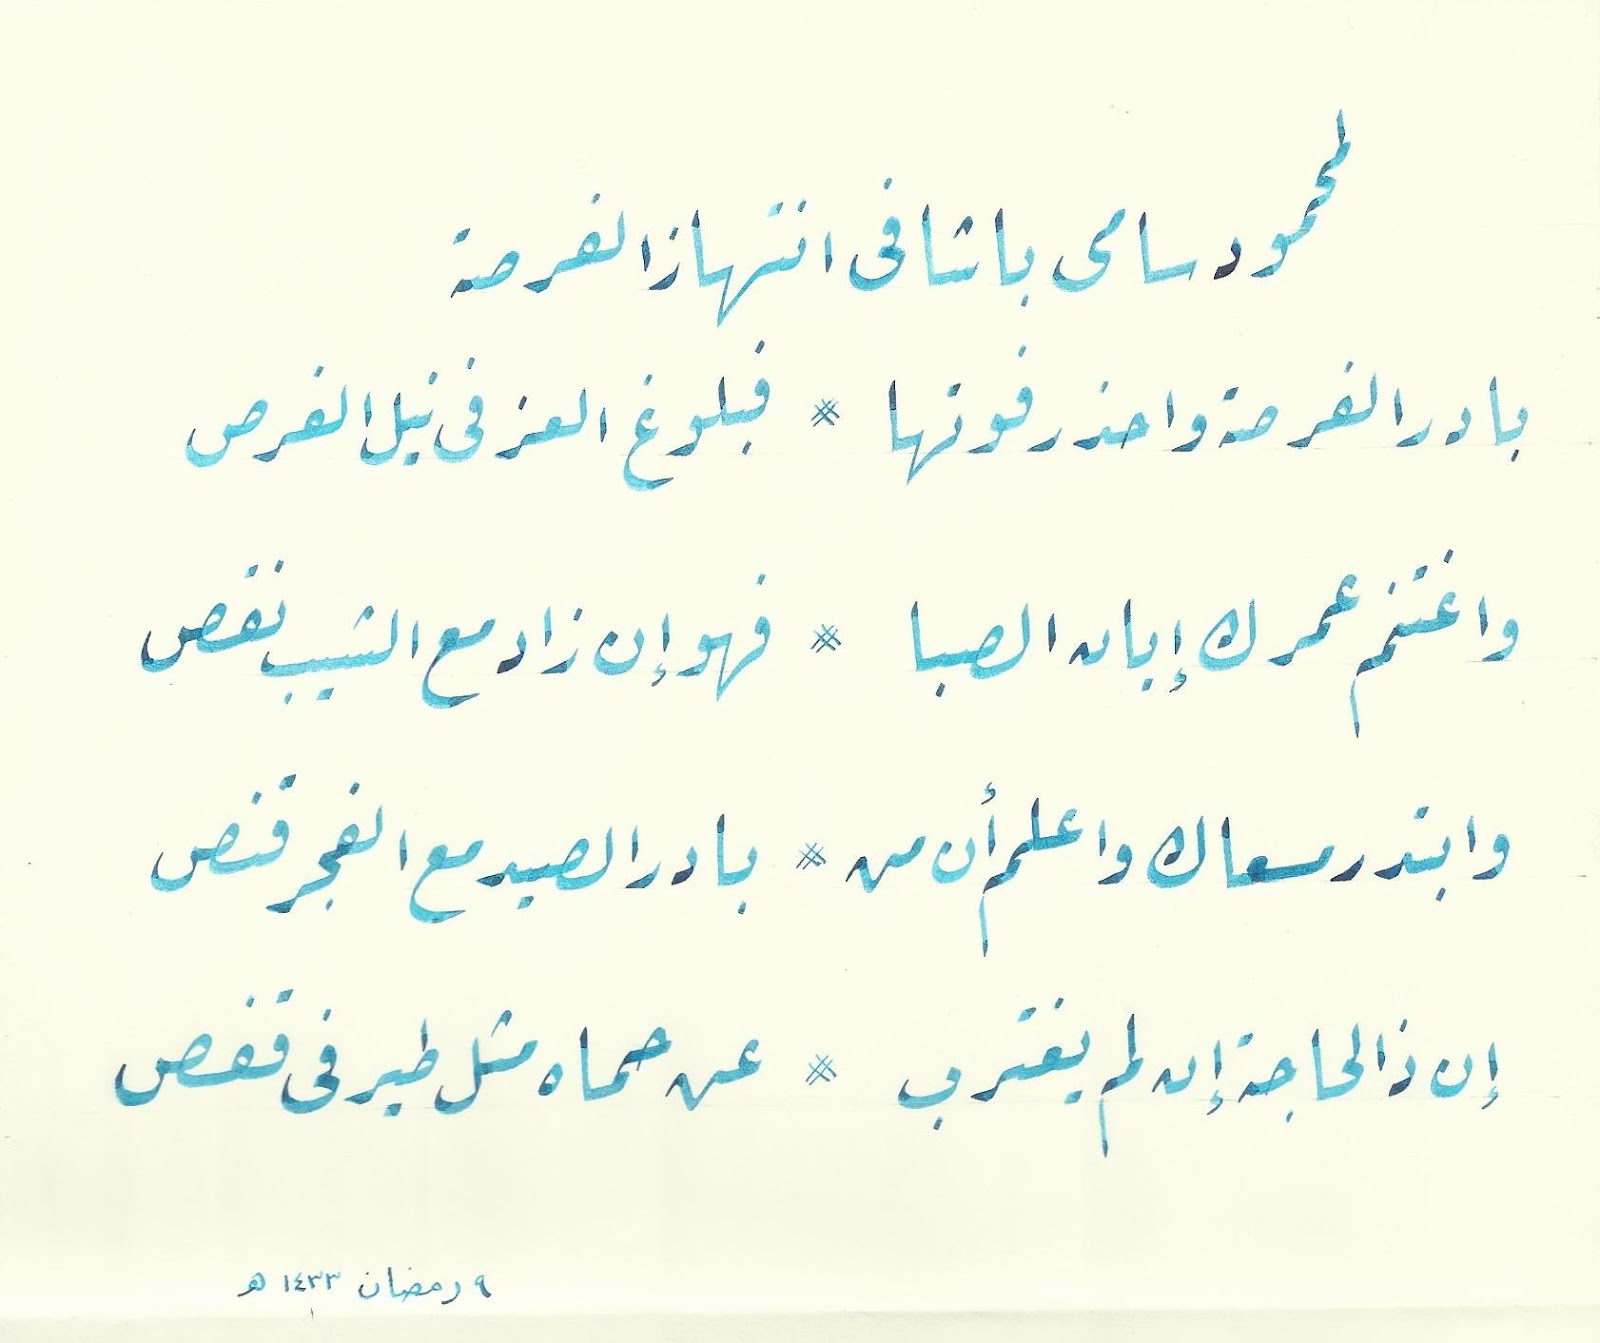 لمحمود سامى باشا فى انتهاز الفرصة
بادر الفرصة واحذر فوتها * فبلوغ العز فى نيل الفرص
واغتنم عمرك إبان الصبا * فهو إن زاد مع الشيب نقص
وابتدر مسعاك واعلم أن من * بادر الصيد مع الفجر قنص
إن ذا الحاجة إن لم يغترب * عن حماه مثل طير فى قفص
٩ رمضان ١٤٣٣ هـ